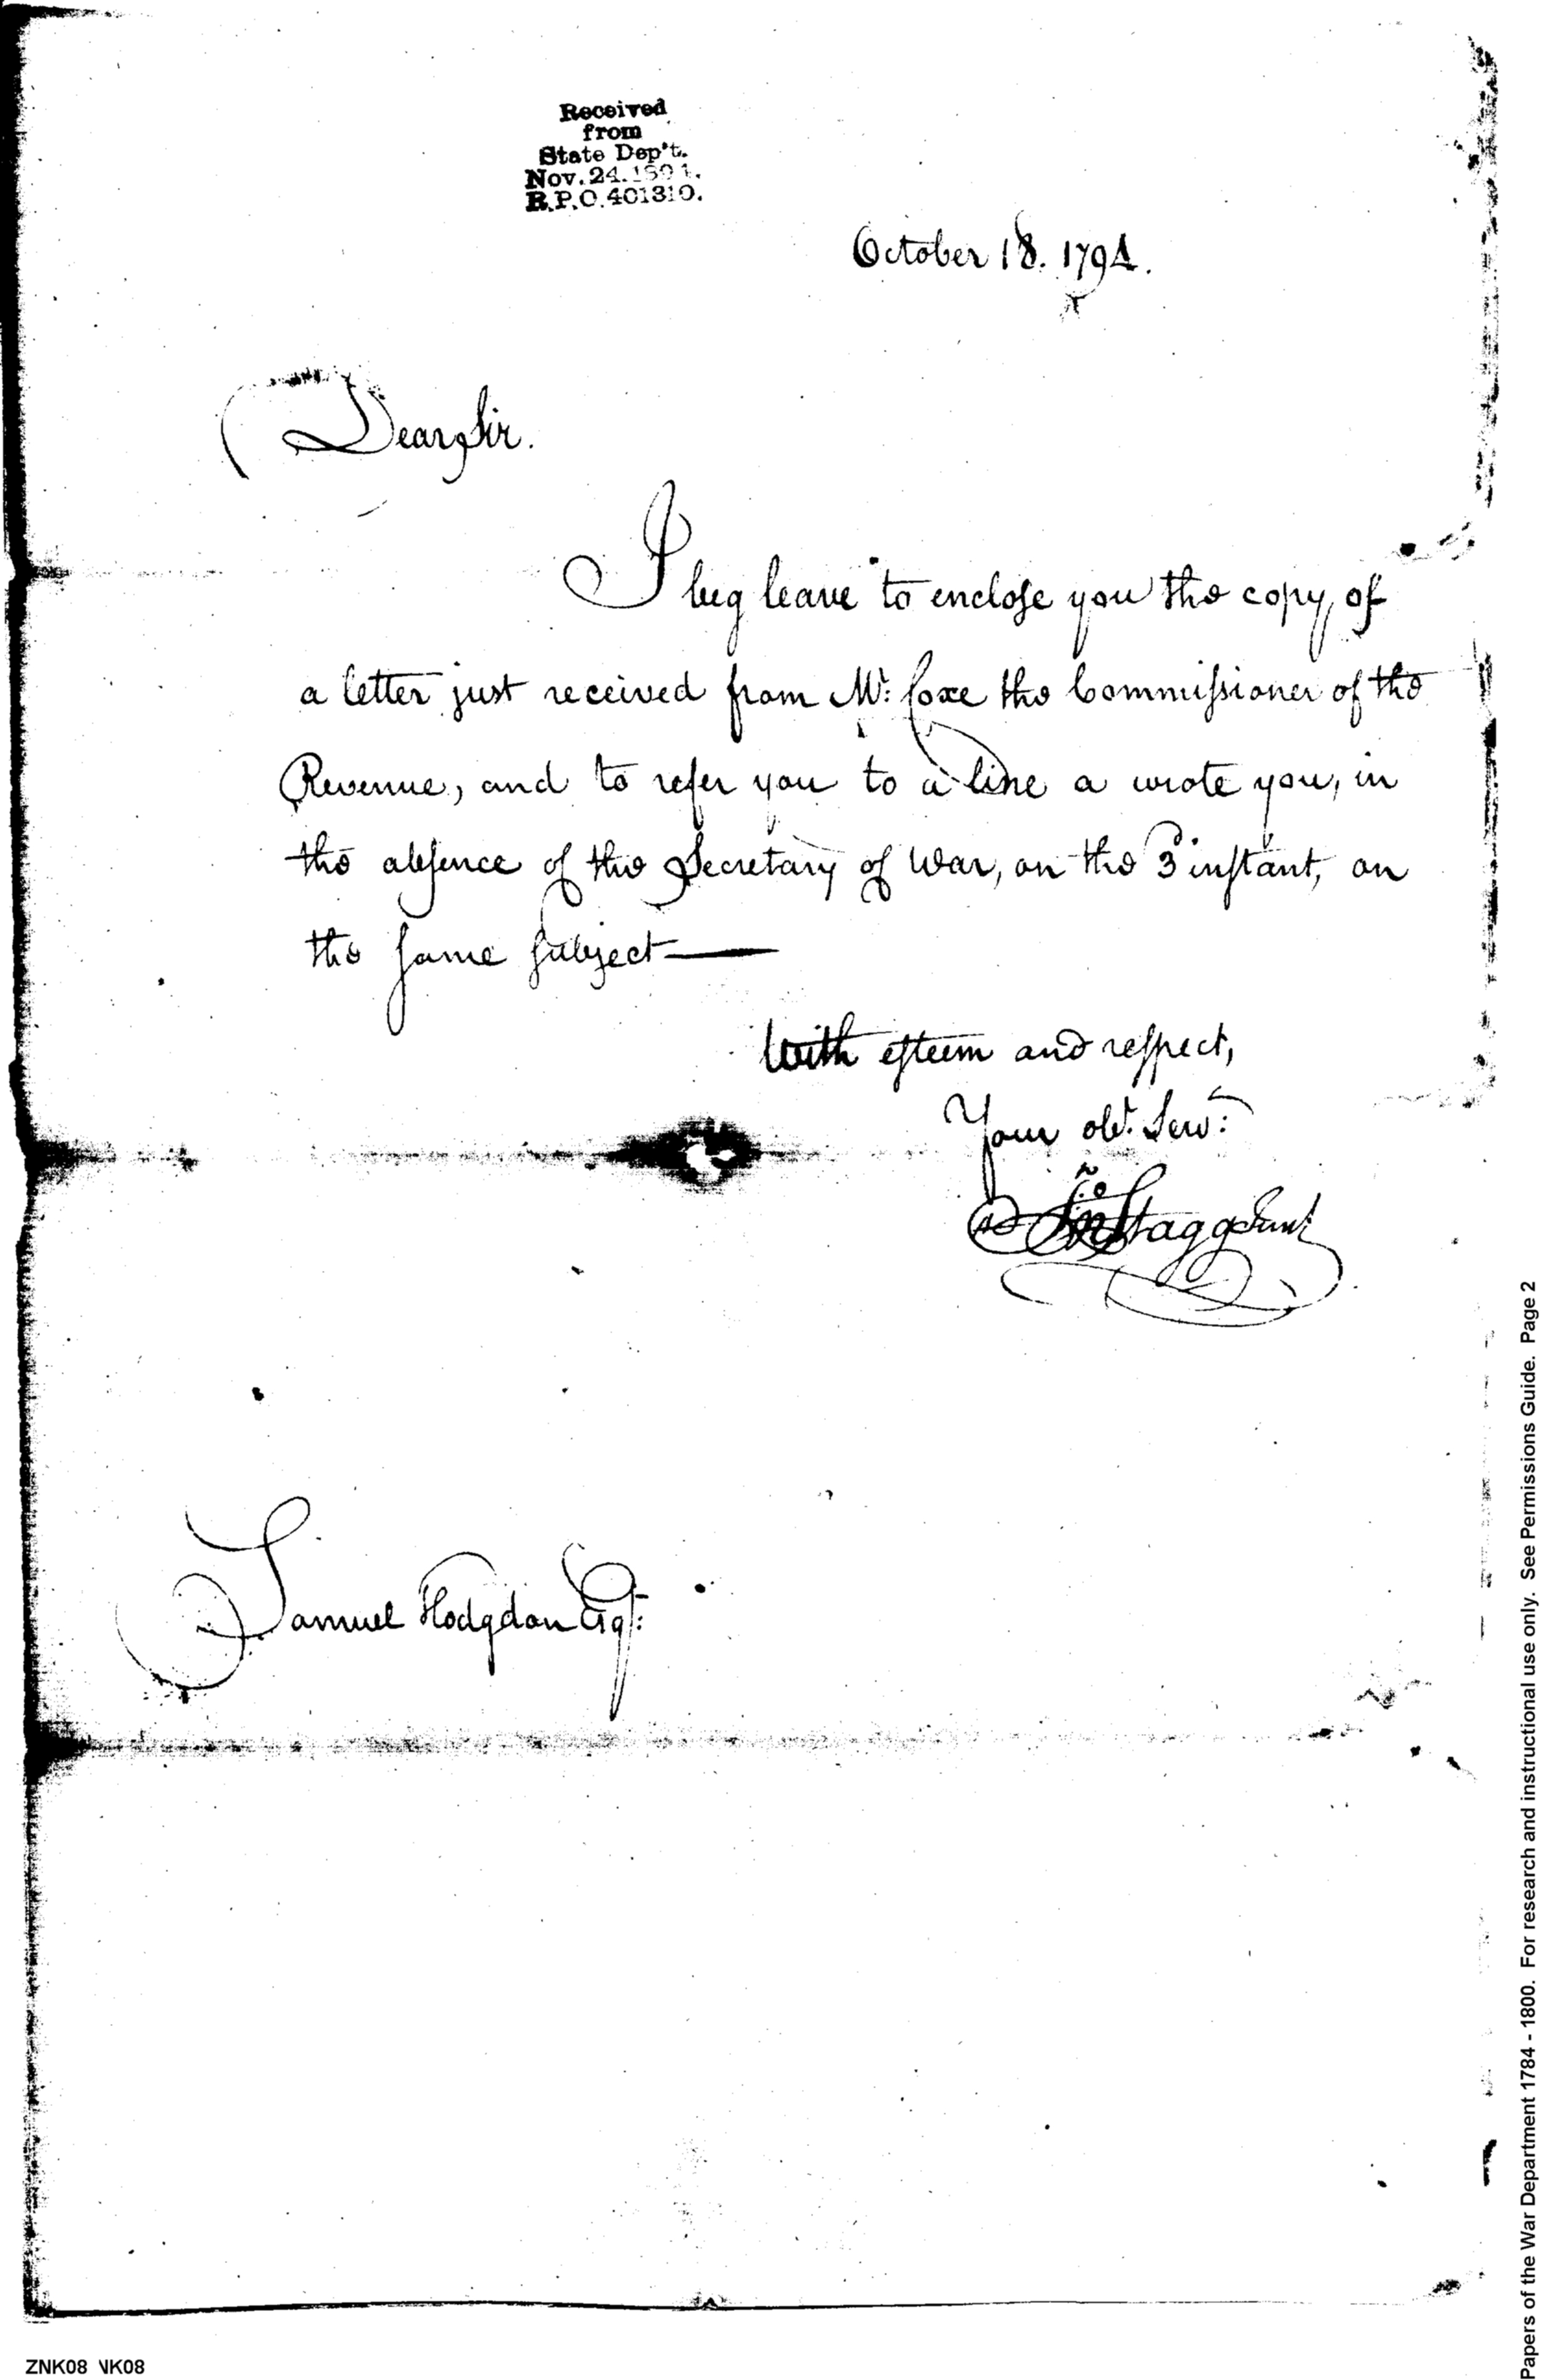 Received
from
State Dep't.
Nov. 24. 1894.
R.P.O. 401310.
October 18. 1794.
Dear Sir.
I beg leave to enclose you the copy of
a letter just received from Mr: Coxe the Commissioner of the
Revenue, and to refer you to a line a wrote you, in
the absence of the Secretary of War, on the 3d instant, on
the same subject —
With esteem and respect,
Your obt. Servt:
Jno Stagg Junr
Samuel Hodgdon Esqr:
Papers of the War Department 1784 - 1800. For research and instructional use only. See Permissions Guide. Page 2
ZNK08 VK08